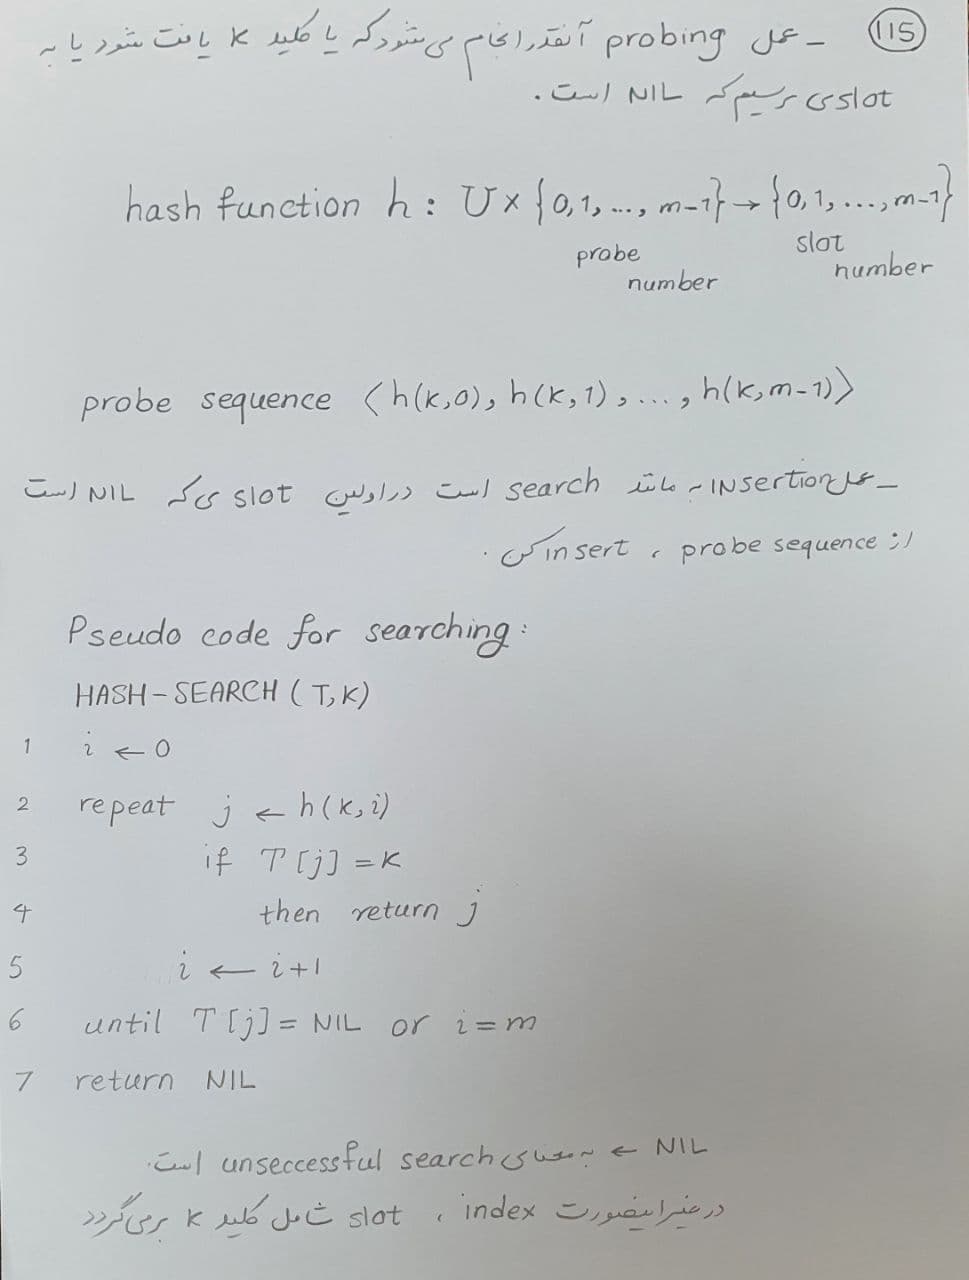 115
ـ عمل probing آنقدر انجام می‌شود که یا کلید k یافت شود یا به
slotی برسیم که NIL است.
hash function h: U × {0,1,..., m-1} → {0,1,...,m-1}
probe number slot number
probe sequence ⟨h(k,0), h(k,1), ..., h(k,m-1)⟩
ـ عمل INsertion مانند search است در اولین slot ی که NIL است
از probe sequence ، insert کن.
Pseudo code for searching:
HASH-SEARCH (T,K)
1 i ← 0
2 repeat j ← h(k,i)
3 if T[j] = K
4 then return j
5 i ← i+1
6 until T[j] = NIL or i = m
7 return NIL
NIL ← به معنای unseccessful search است.
در غیر اینصورت index ، slot شامل کلید k برمی‌گردد